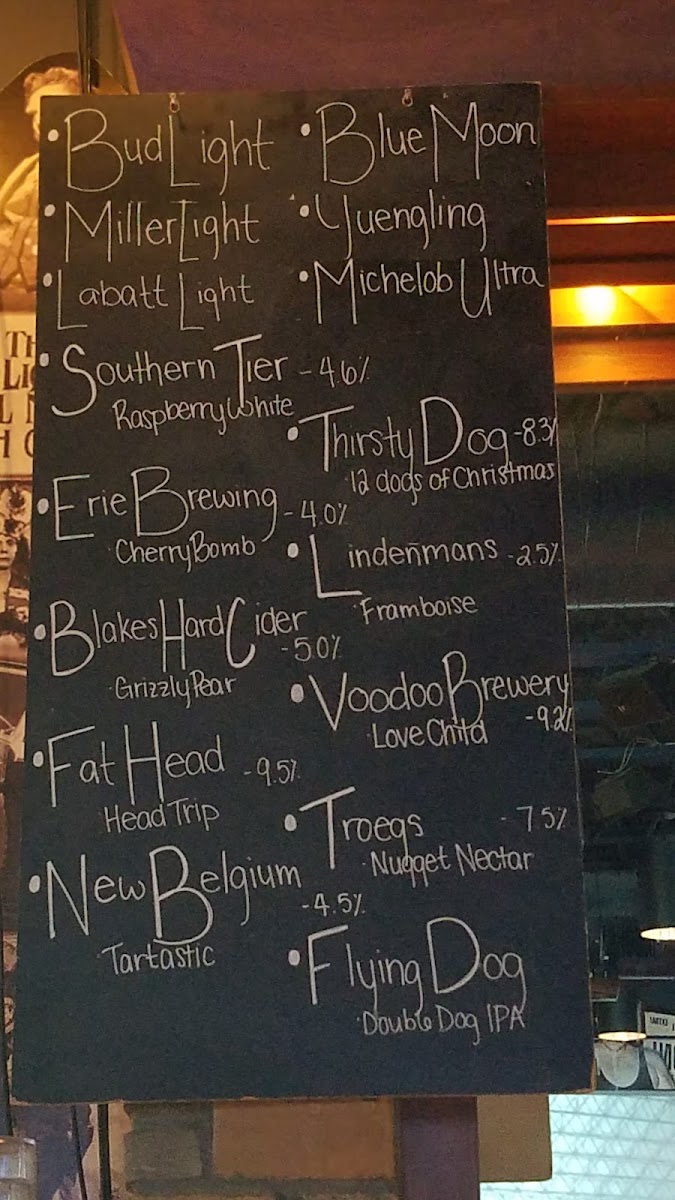 • Bud Light
• Miller Light
• Labatt Light
• Southern Tier - 4.6%
Raspberry White
• Erie Brewing - 4.0%
Cherry Bomb
• Blakes Hard Cider
- 5.0%
Grizzly Pear
• Fat Head - 9.5%
Head Trip
• New Belgium
- 4.5%
Tartastic
• Blue Moon
• Yuengling
• Michelob Ultra
• Thirsty Dog - 8.3%
12 dogs of Christmas
• Lindenmans - 2.5%
Framboise
• Voodoo Brewery
Love Child - 9.2%
• Troegs - 7.5%
Nugget Nectar
• Flying Dog
Double Dog IPA